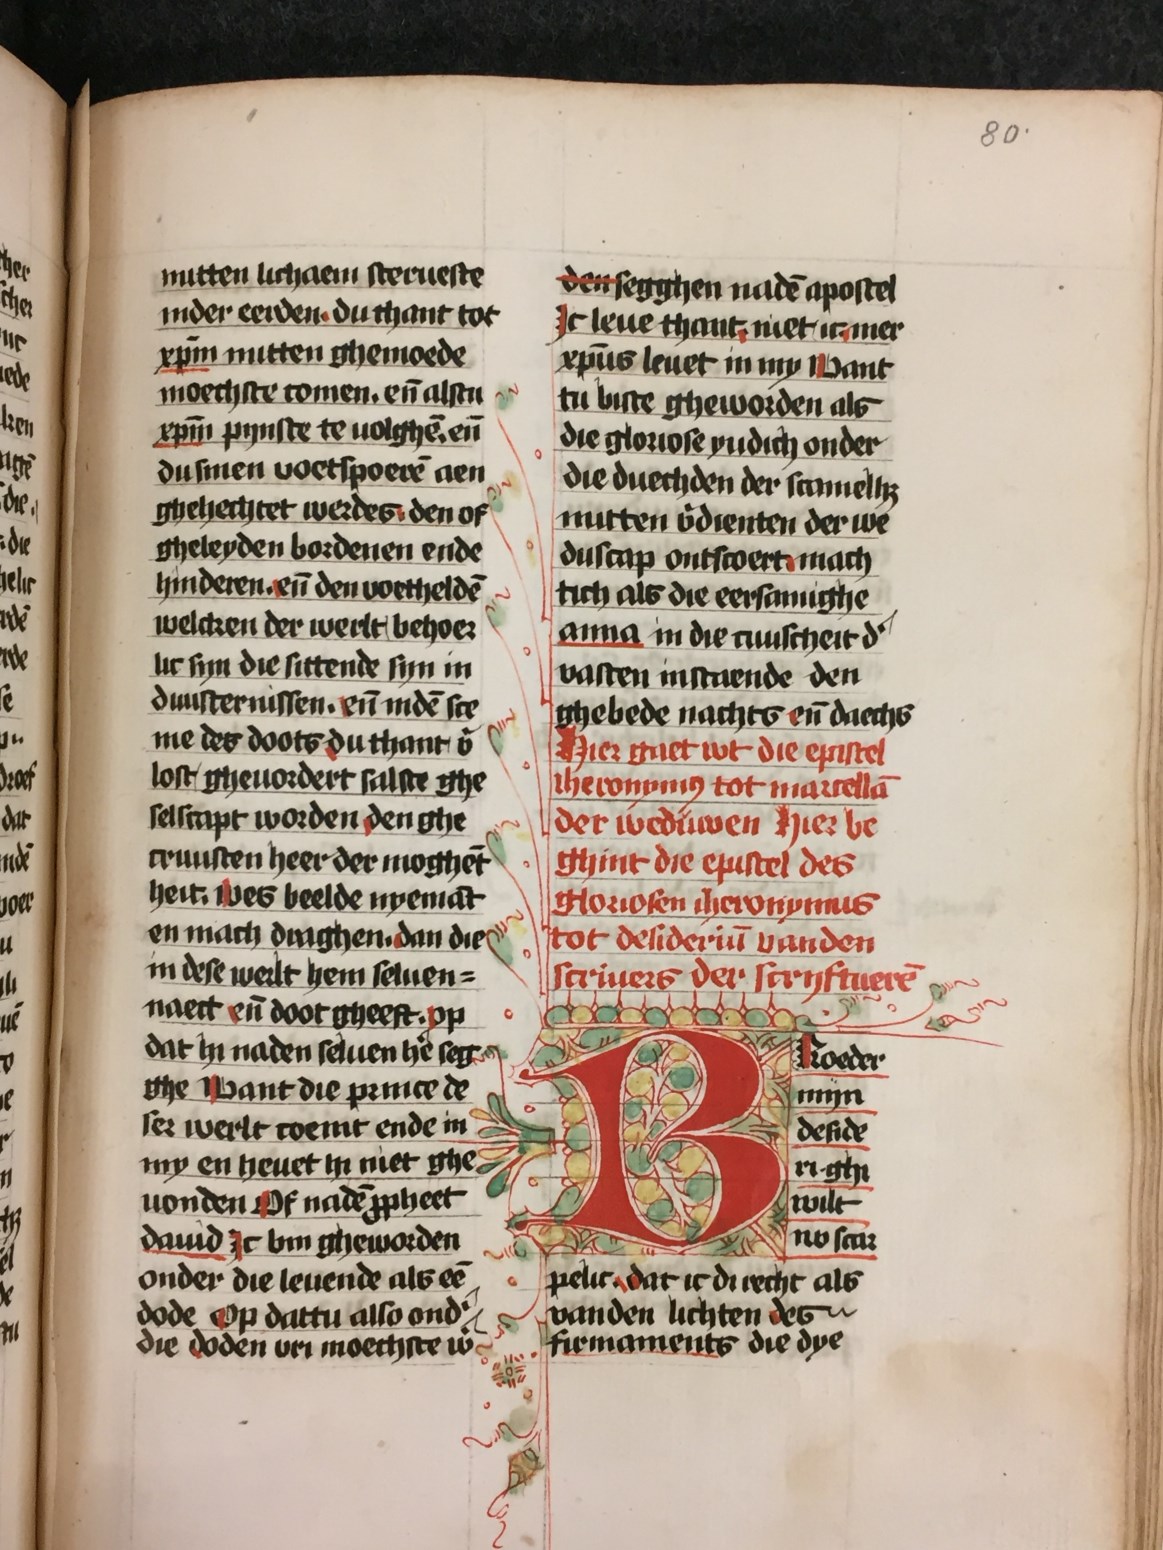 80.
mitten lichaem sterueste
inder eerden. du thant tot
xpm̄ mitten ghemoede
moechste comen. en̄ alstu
xpm̄ pijnste te uolghē. en̄
du sinen voetspoerē aen
ghehechtet werdes. den of
gheleyden bordenen ende
hinderen. en̄ den voerhheldē
welcken der werlt behoer
lic syn die sittende syn in
duusternissen. en̄ indē sce
me des doots du thant v̄
lost gheuordert salste ghe
selscapt worden den ghe
cruusten heer der moghēt
heit. wes beelde nyemāt
en mach draghen. dan die
in dese werlt hem seluen=
naect en̄ doot gheeft. op
dat hi naden seluen hē segᷓ
ghe Want die prince de
ser werlt coemt ende in
my en heuet hi niet ghe
uonden Of nadē ꝓpheet
dauid Ic bin gheworden
onder die leuende als eē
dode Op dattu also ond'
die doden vri moechste w̄
den segghen nadē apostel
Ic leue thant. niet ic. mer
xpūs leuet in my Want
tu biste gheworden als
die gloriose yudich onder
die duechden der scamelhz
mitten v̄dienten der we
duscap ontfoert. mach
tich als die eersamighe
anna in die cuuscheit d'
vasten instaende den
ghebede nachts en̄ daechs
Hier gaet wt die epistel
iheronymꝰ tot marcellā
der weduwen Hier be
ghint die epistel des
gloriosen iheronymus
tot desideriū vanden
scrivers der scryftuerē
BRoeder
mijn
deside
ri. ghi
wilt
no scar
pelic. dat ic di recht als
vanden lichten des
firmaments die dye